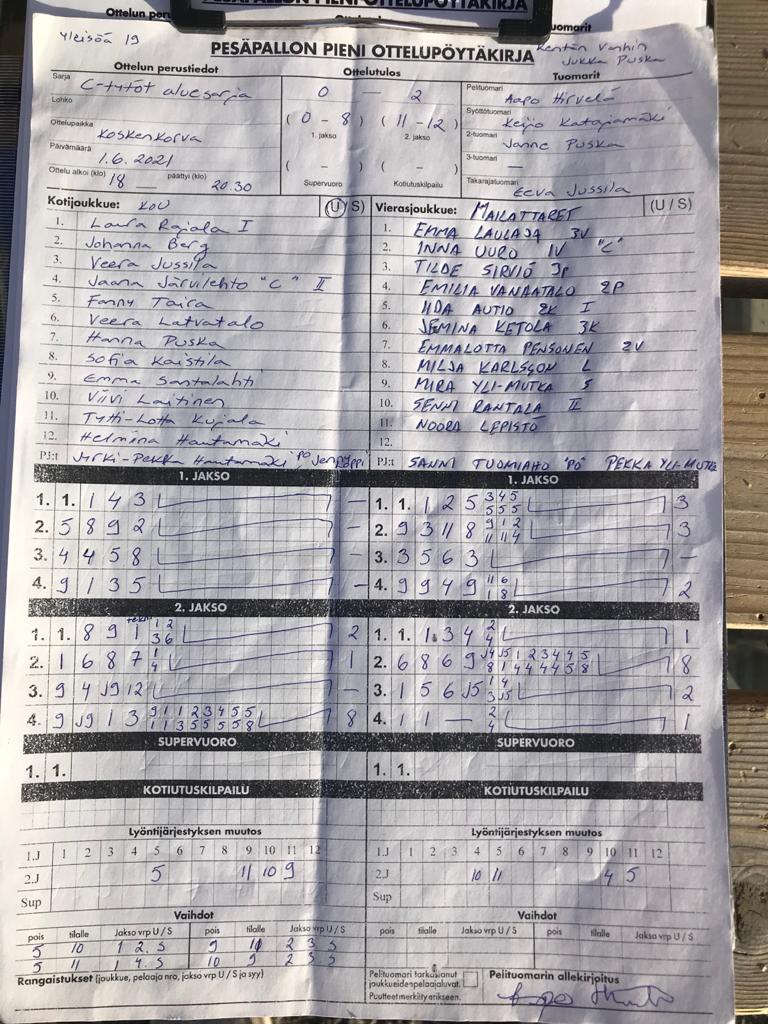 OTTELUPÖYTÄKIRJA
Ottelun
Yleisöä 19
PESÄPALLON PIENI OTTELUPÖYTÄKIRJA
Kentän Vanhin
Jukka Puska
Ottelun perustiedot Ottelutulos Tuomarit
Sarja C-tytöt aluesarja
0 — 2
Pelituomari Aapo Hirvelä
Lohko
(0 - 8) (11 - 12)
1. jakso 2. jakso
Syöttötuomari Keijo Katajamäki
Ottelupaikka Koskenkorva
2-tuomari Janne Puska
Päivämäärä 1.6.2021
( - ) ( - )
3-tuomari —
Ottelu alkoi (klo) 18 päättyi (klo) 20.30
Supervuoro Kotiutuskilpailu
Takarajatuomari Eeva Jussila
Kotijoukkue: KoU (U/S)
Vierasjoukkue: MAILATTARET (U / S)
1. Laura Rajala I
2. Johanna Berg
3. Veera Jussila
4. Jaana Järvilehto "C" II
5. Fanny Taira
6. Veera Latvatalo
7. Hanna Puska
8. Sofia Kaistila
9. Emma Santalahti
10. Viivi Laitinen
11. Tytti-Lotta Kujala
12. Helmina Hautamäki
PJ:t Jyrki-Pekka Hautamäki PO
1. EMMA LAULAJA 3V
2. INNA UURO 1V "C"
3. TILDE SIRVIÖ 3P
4. EMILIA VANAATALO 2P
5. IIDA AUTIO 2K I
6. JEMINA KETOLA 3K
7. EMMALOTTA PENSONEN 2V
8. MILJA KARLSSON L
9. MIRA YLI-MUTKA S
10. SENNI RANTALA II
11. NOORA LEPISTÖ
12.
PJ:t SANNI TUOMIAHO "PO" PEKKA YLI-MUTKA
1. JAKSO
1. 1. 1 4 3 —
2. 5 8 9 2 —
3. 4 4 5 8 —
4. 9 1 3 5 —
1. JAKSO
1. 1. 1 2 5 3 4 5 3
5 5 5
2. 9 3 11 8 9 1 2 3
11 11 4
3. 3 5 6 3 —
4. 9 9 4 9 11 6 2
1 8
2. JAKSO
1. 1. 8 9 1 1 2 2
3 6
2. 1 6 8 7 1 1
4
3. 9 4 J9 12 —
4. 9 J9 1 3 9 1 1 2 3 4 5 5 8
1 1 3 5 5 5 5 8
2. JAKSO
1. 1. 1 3 4 2 1
4
2. 6 8 6 9 J4 J5 1 2 3 4 4 5 8
8 1 4 4 4 4 5 8
3. 1 5 6 J5 1 4 2
3 J5
4. 1 1 — 2 1
4
SUPERVUORO
1. 1.
SUPERVUORO
1. 1.
KOTIUTUSKILPAILU
KOTIUTUSKILPAILU
Lyöntijärjestyksen muutos
1.J 1 2 3 4 5 6 7 8 9 10 11 12
2.J 5 11 10 9
Lyöntijärjestyksen muutos
1.J 1 2 3 4 5 6 7 8 9 10 11 12
2.J 10 11 4 5
Sup
Sup
Vaihdot
pois tilalle Jakso vrp U / S pois tilalle Jakso vrp U / S
5 10 1 2 S 9 10 2 3 S
5 11 1 4 S 10 9 2 3 S
Vaihdot
pois tilalle Jakso vrp U / S pois tilalle Jakso vrp U / S
Rangaistukset (joukkue, pelaaja nro, jakso vrp U / S ja syy)
Pelituomari tarkastanut
joukkueiden pelaajaluvat.
Puutteet merkitty erikseen.
Pelituomarin allekirjoitus